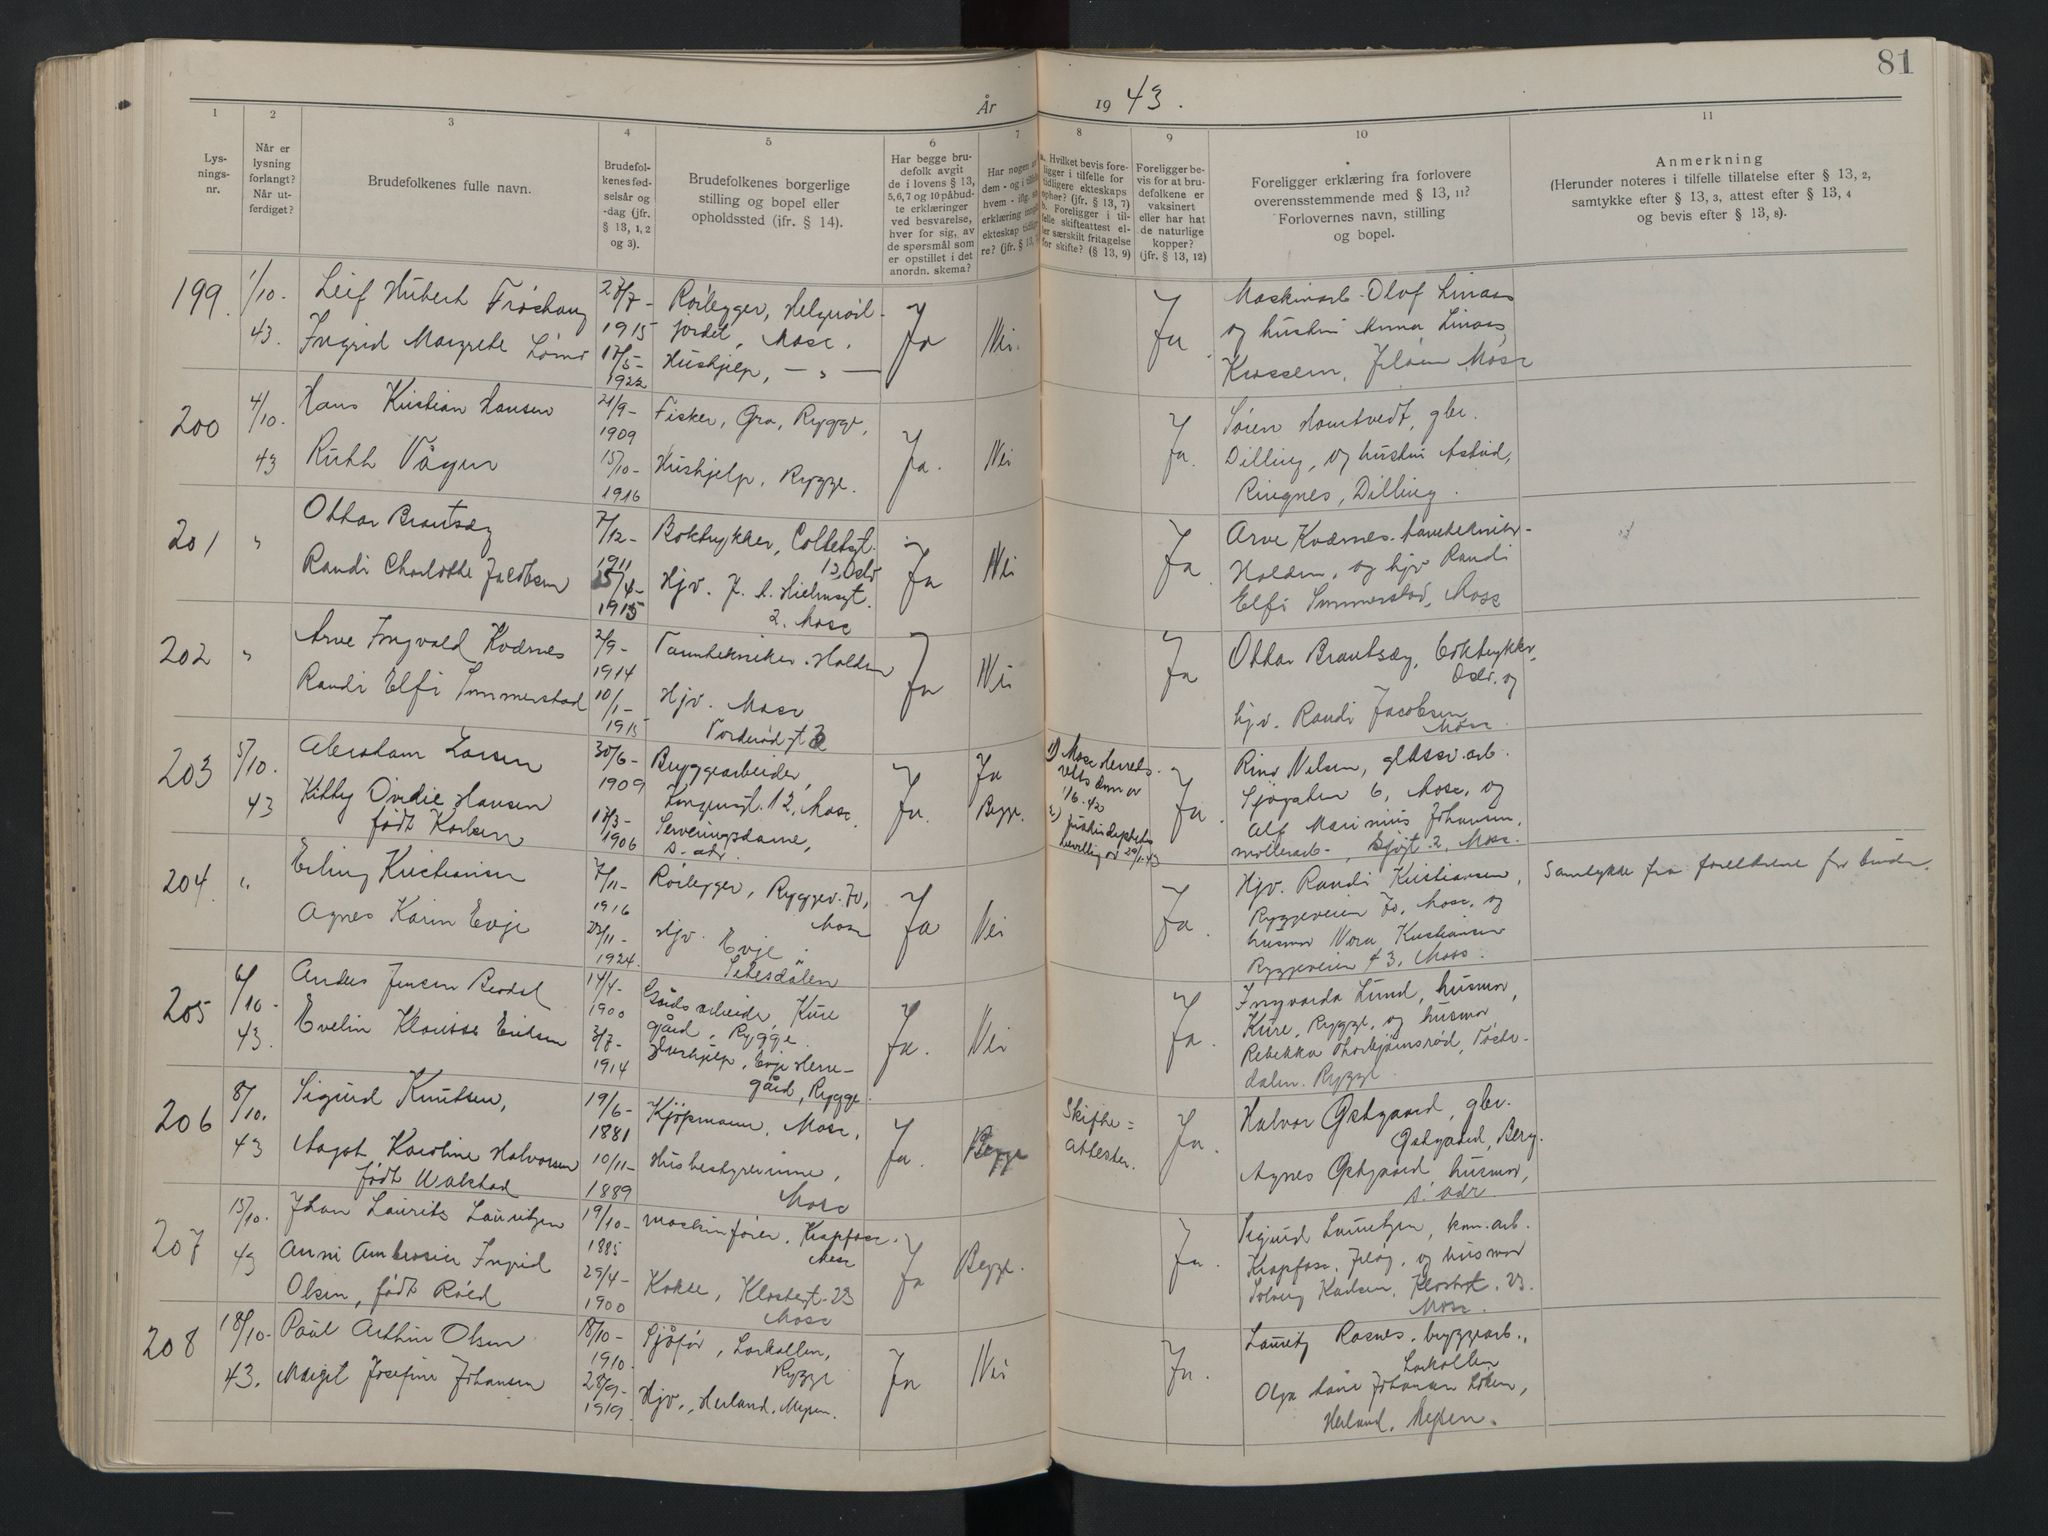 81
År 1943.
1
2
3
4
5
6
7
8
9
10
11
Lys-
nings-
nr.
Når er
lysning
forlangt?
Når ut-
ferdiget?
Brudefolkenes fulle navn.
Brudefol-
kenes fød-
selsår og
-dag (jfr.
§ 13, 1, 2
og 3).
Brudefolkenes borgerlige
stilling og bopel eller
opholdssted (ifr. § 14).
Har begge bru-
defolk avgit
de i lovens § 13,
5, 6, 7 og 10 påbud-
te erklæringer
ved besvarelse,
hver for sig, av
de spørsmål som
er opstillet i det
anordn. skema?
Har nogen av
dem - og i tilfelle
hvem - iflg. sin
erklæring inngått
ekteskap tidlige-
re? (jfr. § 13, 7)
a. Hvilket bevis fore-
ligger i tilfelle for
tidligere ekteskaps
ophør? (jfr. § 13, 7)
b. Foreligger i til-
felle skifteattest el-
ler særskilt fritagelse
for skifte? (§ 13, 9)
Foreligger be-
vis for at bru-
defolkene er
vaksinert
eller har hat
de naturlige
kopper?
(jfr. § 13, 12)
Foreligger erklæring fra forlovere
overensstemmende med § 13, 11?
Forlovernes navn, stilling
og bopel.
Anmerkning
(Herunder noteres i tilfelle tillatelse efter § 13, 2,
samtykke efter § 13, 3, attest efter § 13, 4
og bevis efter § 13, 8).
199.
1/10-
43.
Leif Hubert
Ingrid Margrete
27/7-
1915
17/5-
1922
Rørlegger,
jordet, Moss.
Hushjelp, — „ —
Ja
Nei.
Ja.
Maskinarb. Olaf Linaas
og hustru Anna Linaas,
Jeløen Moss
200
4/10.
43
Hans Kristian Hansen
Ruth Vågen
21/9-
1909
15/10-
1916
Fisker, Gra, Rygge,
Hushjelp, Rygge.
Ja.
Nei
Ja.
Søren Homtvedt, gbr.
Dilling, og hustru
Ringnes, Dilling.
201
„
Ottar Brantsæg
Randi Charlotte Jacobsen
7/12-
1911
5/4-
1915
Boktrykker, Colletsgt.
13, Oslo
Hjv.
2. Moss
Ja
Nei
Ja.
Arve Kvernes. tanntekniker-
Halden, og hjv Randi
Elfi Simmerstad, Moss
202
„
Arve Ingvald Kvernes
Randi Elfi Simmerstad
2/9-
1914
10/1-
1915
Tanntekniker. Halden
Hjv. Moss
Ja
Nei
Ja
Ottar Brantsæg, boktrykker,
Oslo, og
hjv. Randi Jacobsen
Moss.
203
5/10.
43
Abraham Larsen
Kitty Ovidie Hansen
født Karlsen
30/6-
1909
17/3-
1906
Bryggearbeider,
Kongensgt. 12, Moss.
Serveringsdame,
s. adr.
Ja.
Ja
Begge.
1) Moss Herreds-
retts dom av
1/6.42
2) Justisdeptets
bevilling av 29/1.43
Ja.
Nilsen, glassv. arb.
Sjøgaten 6, Moss, og
Alf Marinius Johansen,
møllearb-, Sjøgt. 2, Moss.
204.
„
Erling Kristiansen
Agnes Karin Evje
7/11-
1916
22/11-
1924.
Rørlegger, Ryggev. 70,
Moss
Hjv. Evje
Setesdalen
Ja
Nei
Ja.
Hjv. Randi Kristiansen,
Ryggeveien 70, Moss, og
husmor Nora Kristiansen
Ryggeveien 43, Moss.
Samtykke fra foreldrene for bruden.
205
6/10-
43.
Anders Jensen Berdal
Evelin Klarisse Eriksen
14/4-
1900
3/7-
1914
Gårdsarbeider, Kure
gård, Rygge.
Hushjelp, Evje Herre-
gård, Rygge.
Ja.
Nei
Ja.
Ingvarda Lund, husmor,
Kure, Rygge, og husmor
Rebekka Thorbjørnsrød,
dalen. Rygge
206
8/10.
43
Sigurd Knutsen,
Aagot Karoline Halvorsen
født Wakstad
19/6-
1881
10/11-
1889
Kjøpmann, Moss,
Husbestyrerinne,
Moss
Ja.
Begge
Skifte=
attester.
Ja.
Halvor Østgaard, gbr.
Østgaard, Berg.
Agnes Østgaard husmor,
s. adr.
207
15/10.
43
Johan Laurits Lauritzen
Anni Ambrosier Ingrid
Olsen, født Røed
19/10-
1885
29/4-
1900
Maskinfører, Krapfoss.
Moss
Kokke, Klostergt. 23
Moss
Ja
Begge.
Ja.
Sigurd Lauritzen, kom.arb.
Krapfoss, Jeløy, og husmor
Solveig Karlsen, Klostergt. 23.
Moss.
208
18/10-
43.
Paul Arthur Olsen
Margit Josefine Johansen
18/10-
1910.
28/9-
1919.
Sjåfør, Larkollen,
Rygge
Hjv., Herland, Mysen.
Ja
Nei
Ja.
Lauritz Rosnes. bryggearb.,
Larkollen
Olga Johansen
Herland, Mysen.